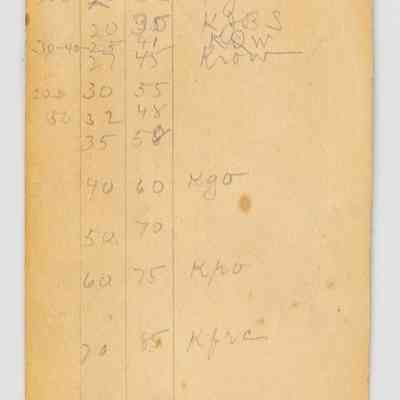 20 35 KJBS
30-40-25 41 KQW
27 45 Krow
200 30 55
50 32 48
35 50
40 60 Kgo
50 70
60 75 Kpo
70 85 Kfrc